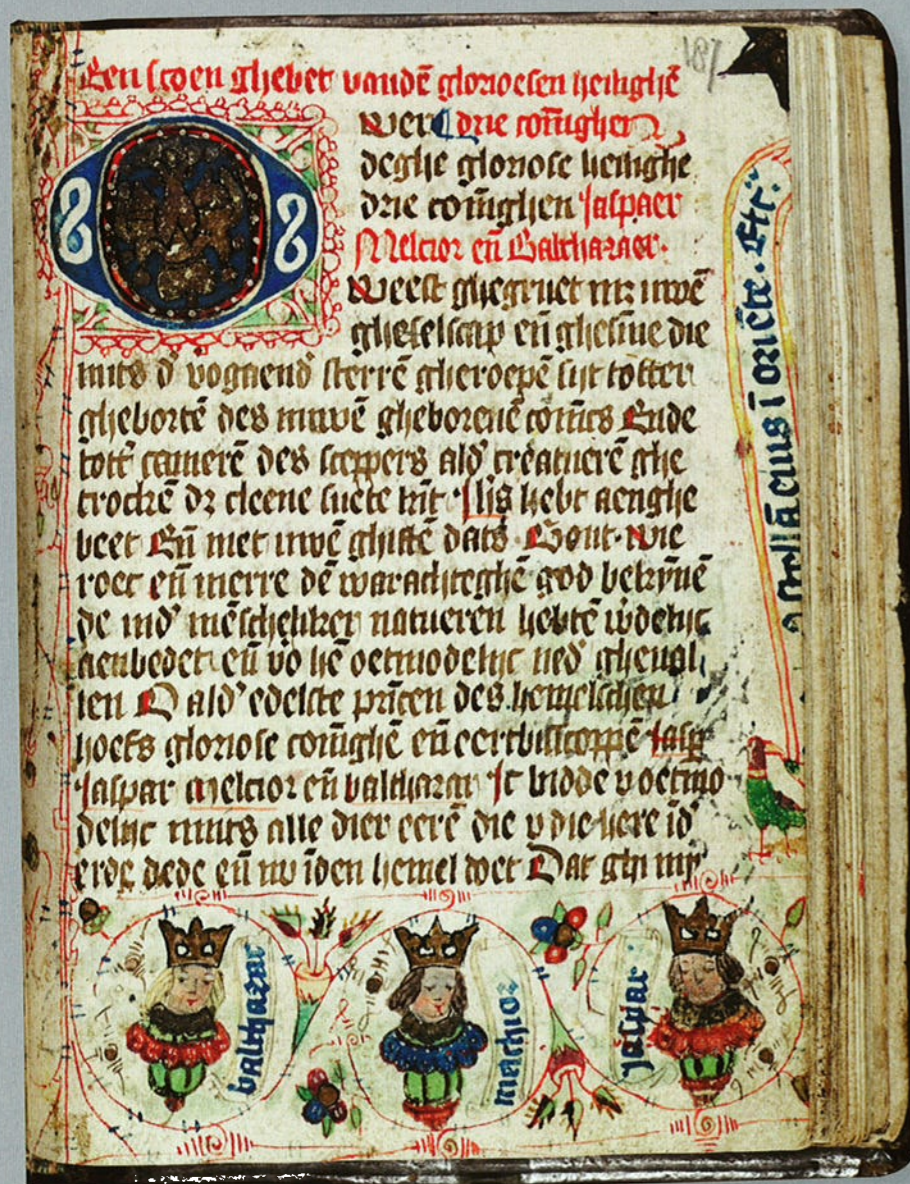 Een scoen ghebet vandē glorioesen heilighē
Wer drie cōnīghen
deghe gloriose heilighe
drie coninghen Jaspaer
Melcior eñ Balthazaer.
Weest ghegruet mz uwē
gheselscap eñ ghesīne die
mits d' vogaend' sterrē gheroepē sijt totten
gheborte des nuwē gheborenē conīcs Ende
tott camerē des sceppers ald' creatuerē ghe
trockē dz cleene suete kīt Ghis hebt aenghe
beet Eñ met uwē ghiftē dats Gout wie
roec eñ mierre dē warachteghē god bekīnē
de ind' mēschelikēr natueren hebtē
aenbedet eñ vo hē oetmodelijc ned' gheual
len O ald' edelste prīcen des hemelschen
hoefs gloriose conīghē eñ eertbisscoppē Jasp
Jaspar melcior eñ balthazar Jc bidde v oetmo
delijc mits alle dier eerē die v die here īd'
erde dede eñ nv īden hemel doet Dat ghi mi
Stellā eius ī oriēte. Etc.
balthazar
melchior
jaspar
187